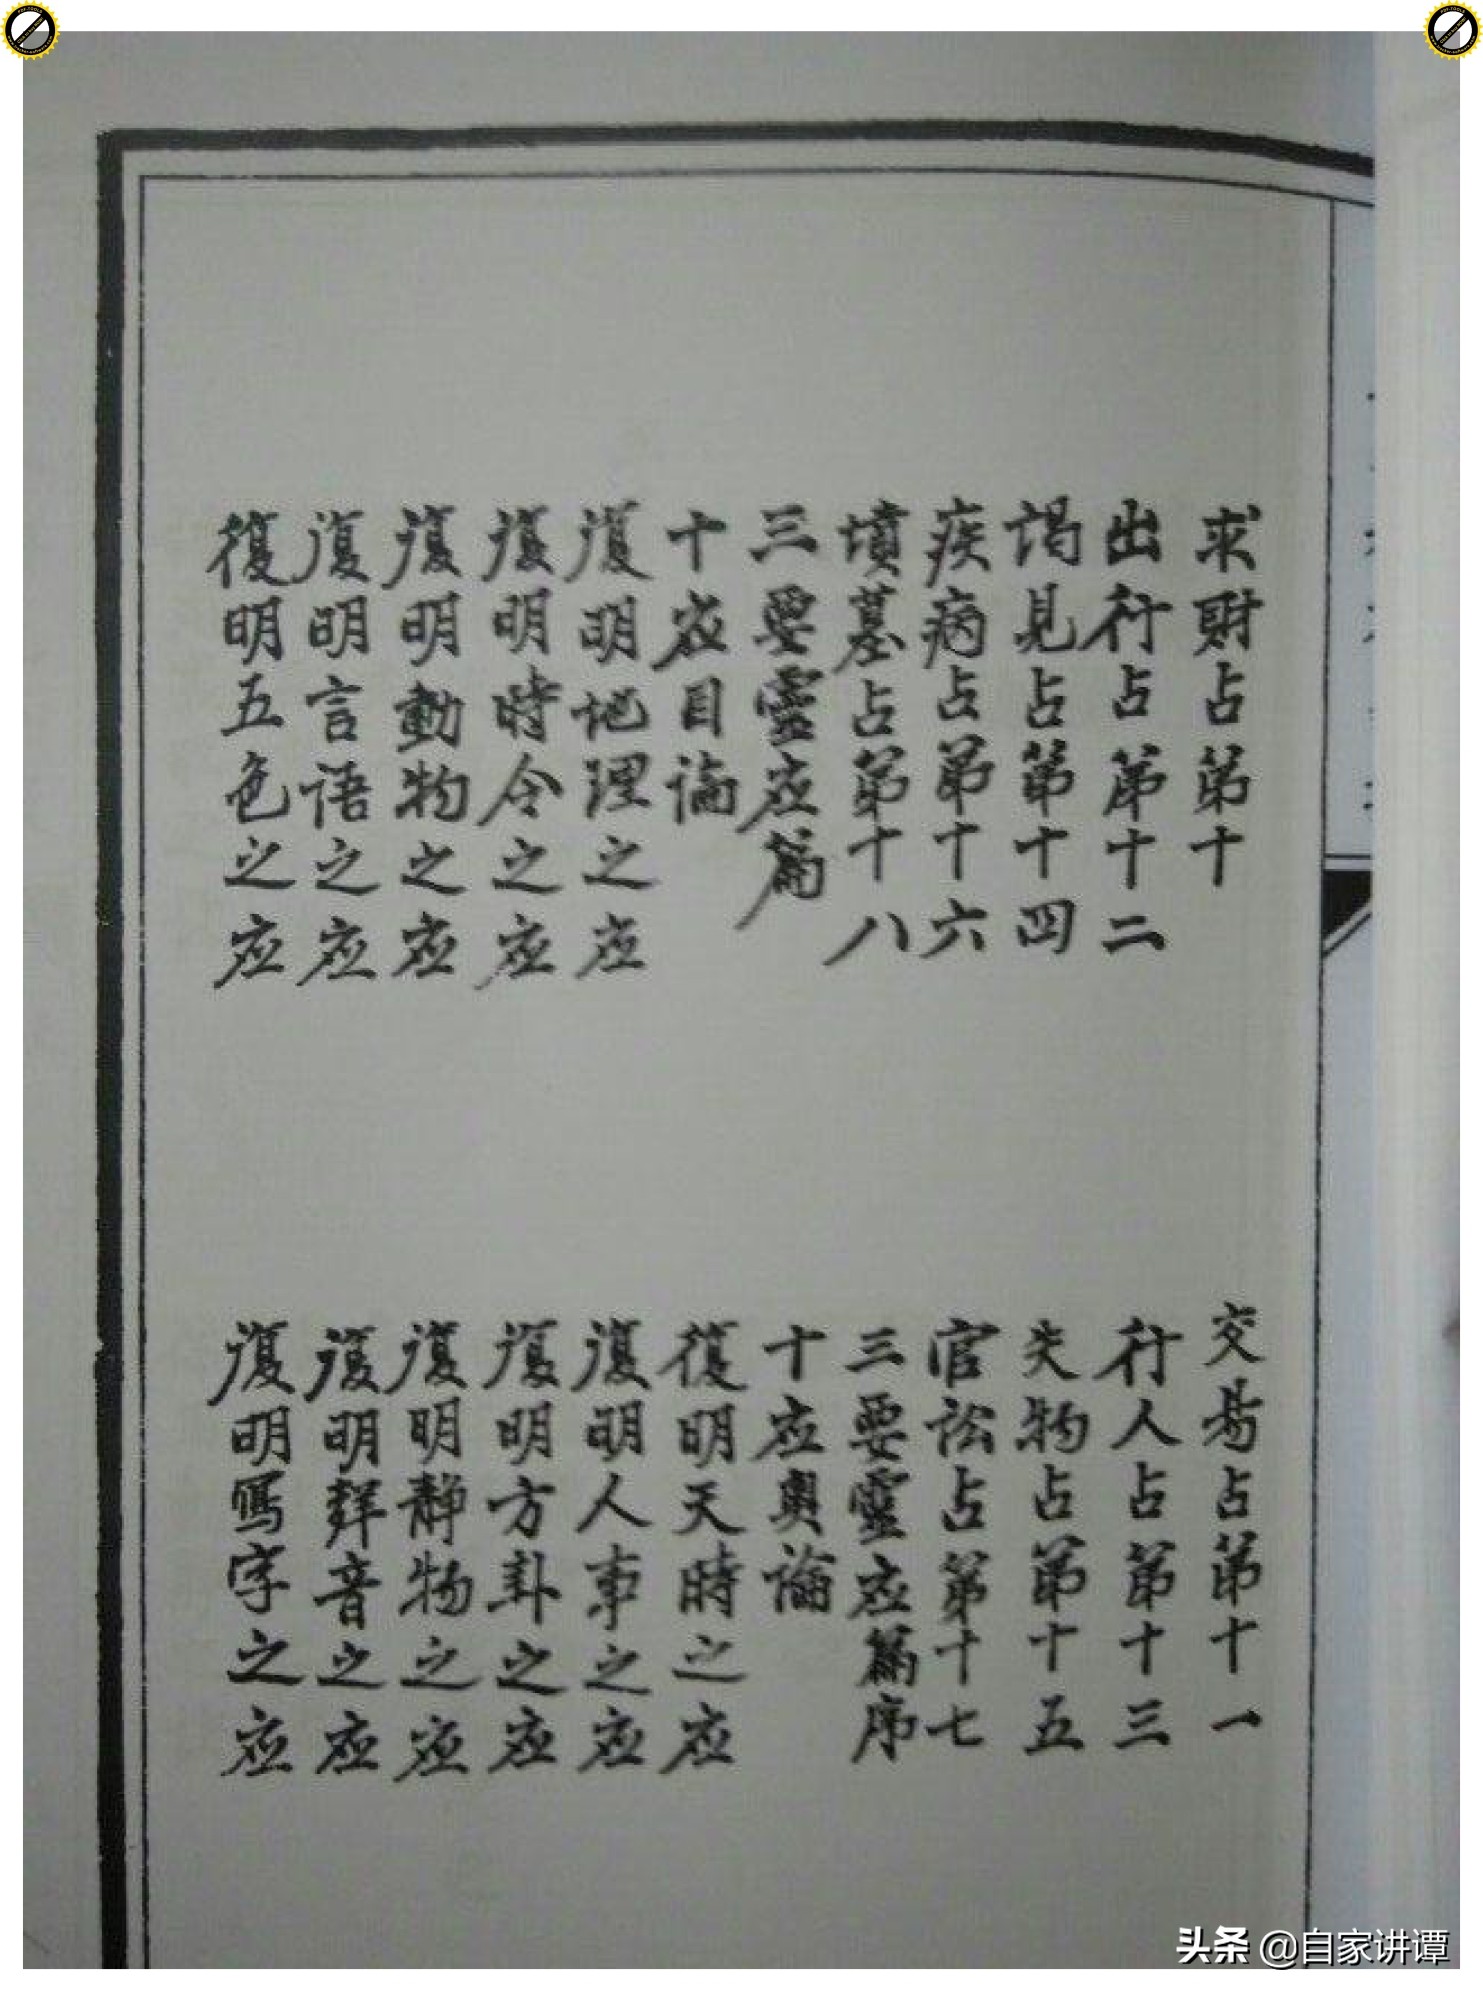 求財占第十
交易占第十一
出行占第十二
行人占第十三
謁見占第十四
失物占第十五
疾病占第十六
官訟占第十七
墳墓占第十八
三要靈应篇序
三要靈应篇
十应奥論
十应目論
復明天時之应
復明地理之应
復明人事之应
復明時令之应
復明方卦之应
復明動物之应
復明静物之应
復明言語之应
復明聲音之应
復明五色之应
復明寫字之应
头条 @自家讲谭